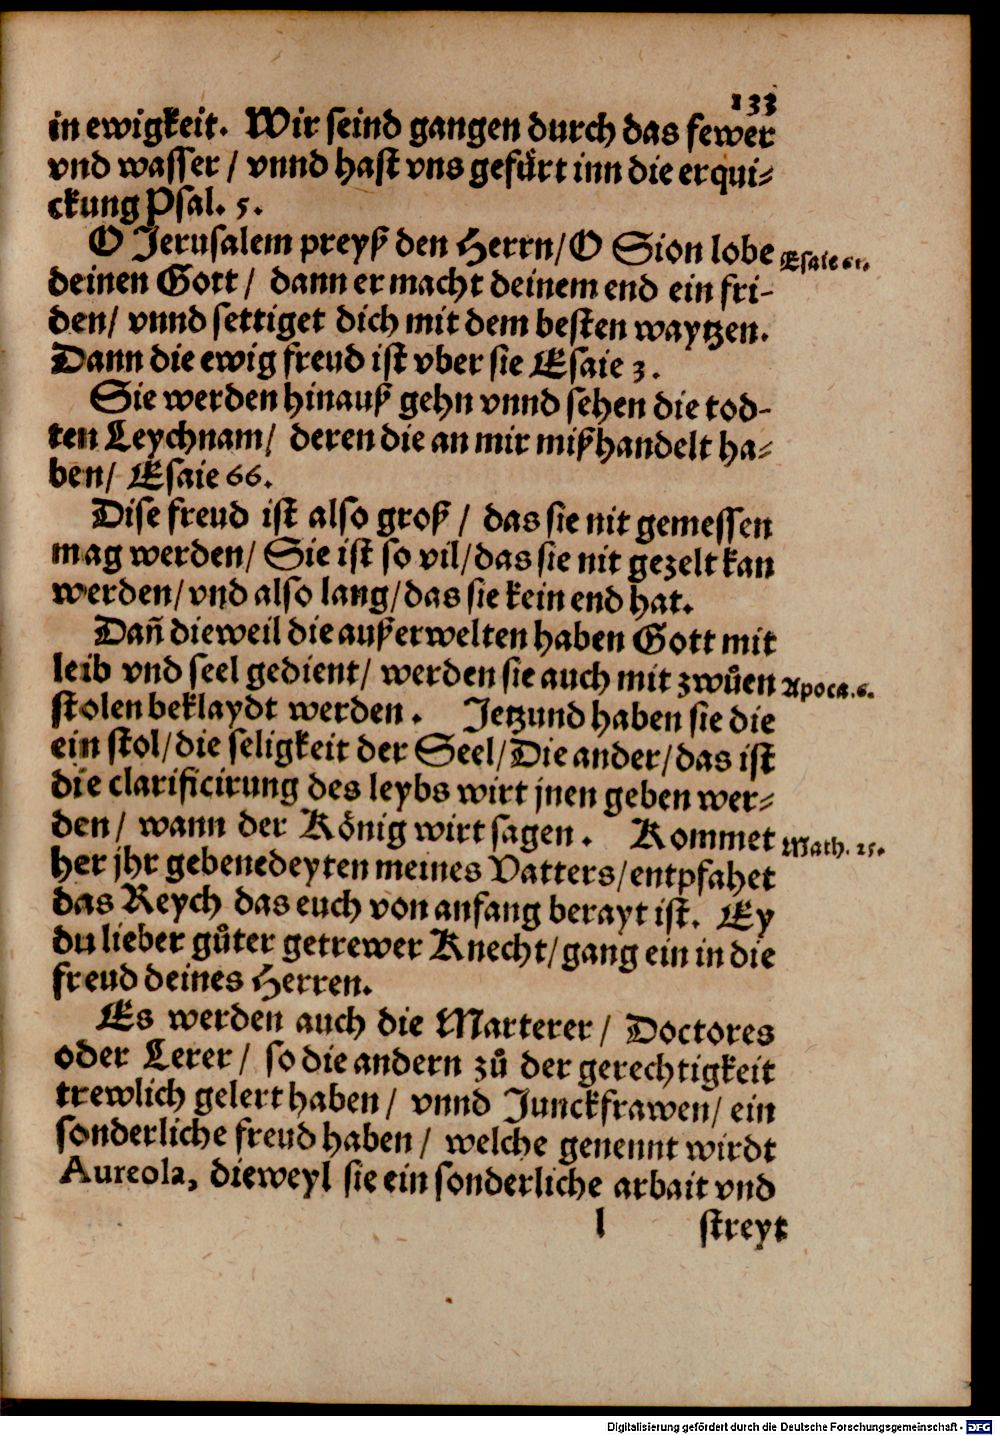 133
in ewigkeit. Wir seind gangen durch das fewer
vnd wasser / vnnd hast vns gefürt inn die erqui⸗
ckung Psal. 5.
O Jerusalem preyß den Herrn/ O Sion lobe
Esaie 61.
deinen Gott / dann er macht deinem end ein fri-
den/ vnnd settiget dich mit dem besten waytzen.
Dann die ewig freud ist vber sie Esaie 3.
Sie werden hinauß gehn vnnd sehen die tod-
ten Leychnam/ deren die an mir mißhandelt ha⸗
ben/ Esaie 66.
Dise freud ist also groß / das sie nit gemessen
mag werden/ Sie ist so vil/ das sie nit gezelt kan
werden/ vnd also lang/ das sie kein end hat.
Dañ dieweil die außerwelten haben Gott mit
leib vnd seel gedient/ werden sie auch mit zwůen
Apoca. 6.
stolen beklaydt werden. Jetzund haben sie die
ein stol/ die seligkeit der Seel/ Die ander/ das ist
die clarificirung des leybs wirt jnen geben wer⸗
den/ wann der König wirt sagen. Kommet
Math. 25.
her jhr gebenedeyten meines Vatters/ entpfahet
das Reych das euch von anfang berayt ist. Ey
du lieber gůter getrewer Knecht/ gang ein in die
freud deines Herren.
Es werden auch die Marterer/ Doctores
oder Lerer/ so die andern zů der gerechtigkeit
trewlich gelert haben/ vnnd Junckfrawen/ ein
sonderliche freud haben/ welche genennt wirdt
Aureola, dieweyl sie ein sonderliche arbait vnd
l streyt
Digitalisierung gefördert durch die Deutsche Forschungsgemeinschaft - DFG